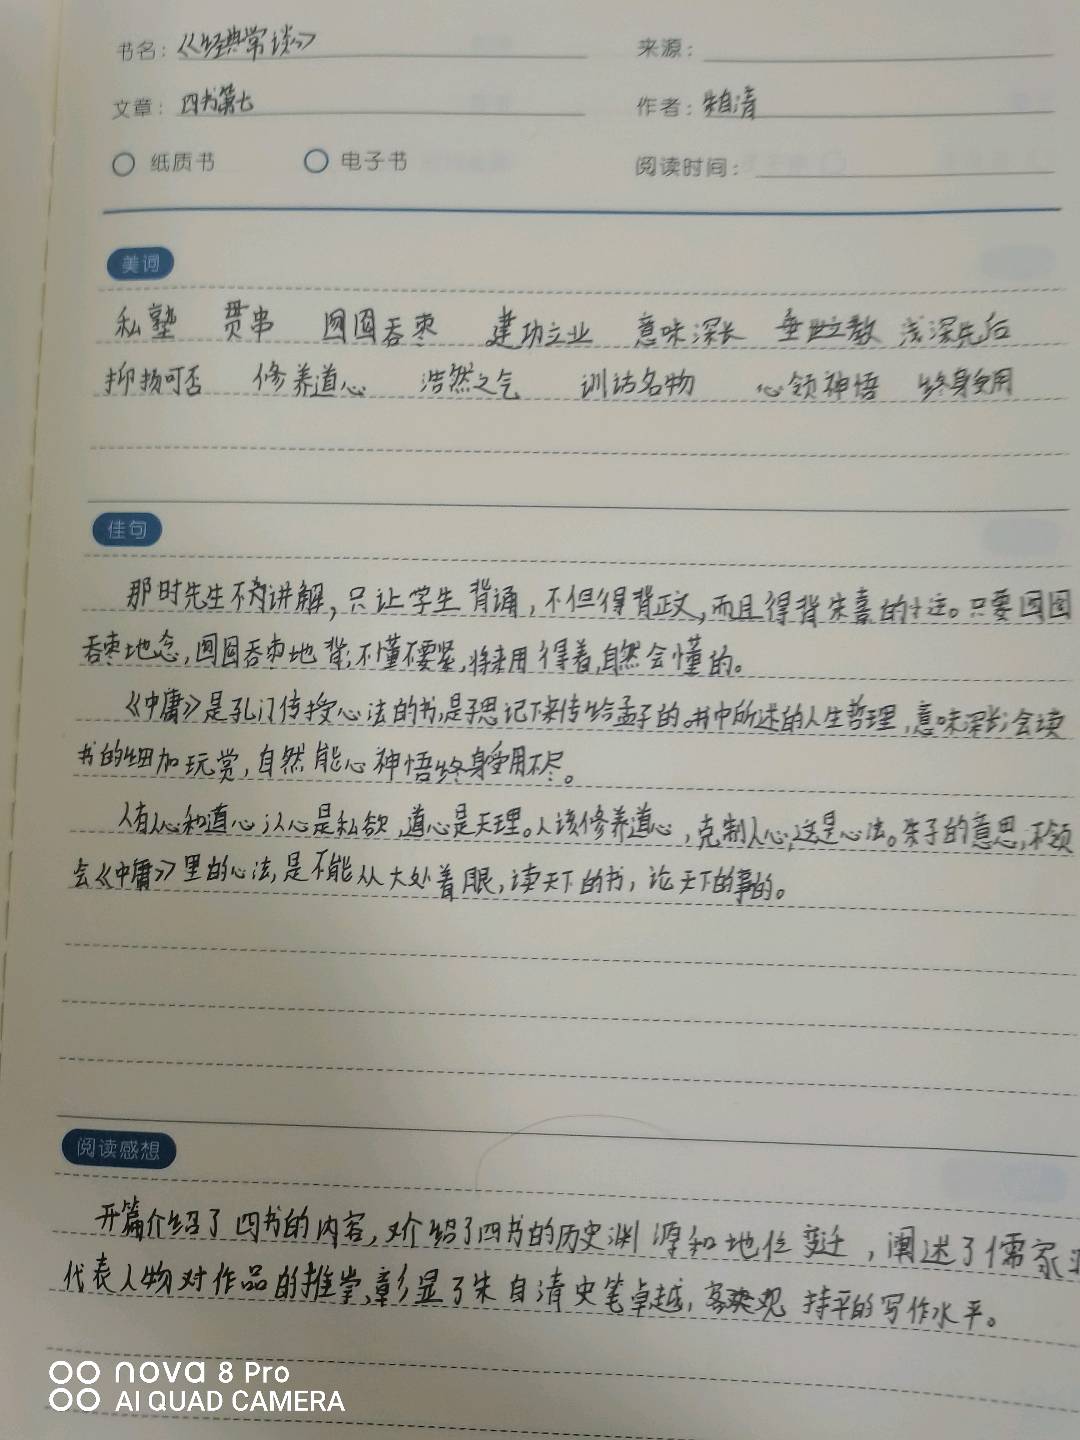 书名：《经典常谈》 来源：
文章：四书第七 作者：朱自清
纸质书 电子书 阅读时间：
美词
私塾 贯串 囫囵吞枣 建功立业 意味深长 垂世立教 浅深先后
抑扬可否 修养道心 浩然之气 训诂名物 心领神悟 终身受用
佳句
那时先生不讲解，只让学生背诵，不但得背正文，而且得背朱熹的小注。只要囫囵
吞枣地念，囫囵吞枣地背；不懂不要紧，将来用得着，自然会懂的。
《中庸》是孔门传授心法的书，是子思记下来传给孟子的。书中所述的人生哲理，意味深长；会读
书的细加玩赏，自然能心神悟终身受用不尽。
人有人心和道心；人心是私欲，道心是天理。人该修养道心，克制人心，这是心法。朱子的意思，不领
会《中庸》里的心法，是不能从大处着眼，读天下的书，论天下的事的。
阅读感想
开篇介绍了四书的内容，对介绍了四书的历史渊源和地位变迁，阐述了儒家
代表人物对作品的推崇，彰显了朱自清史笔卓越，客观持平的写作水平。
nova 8 Pro
AI QUAD CAMERA